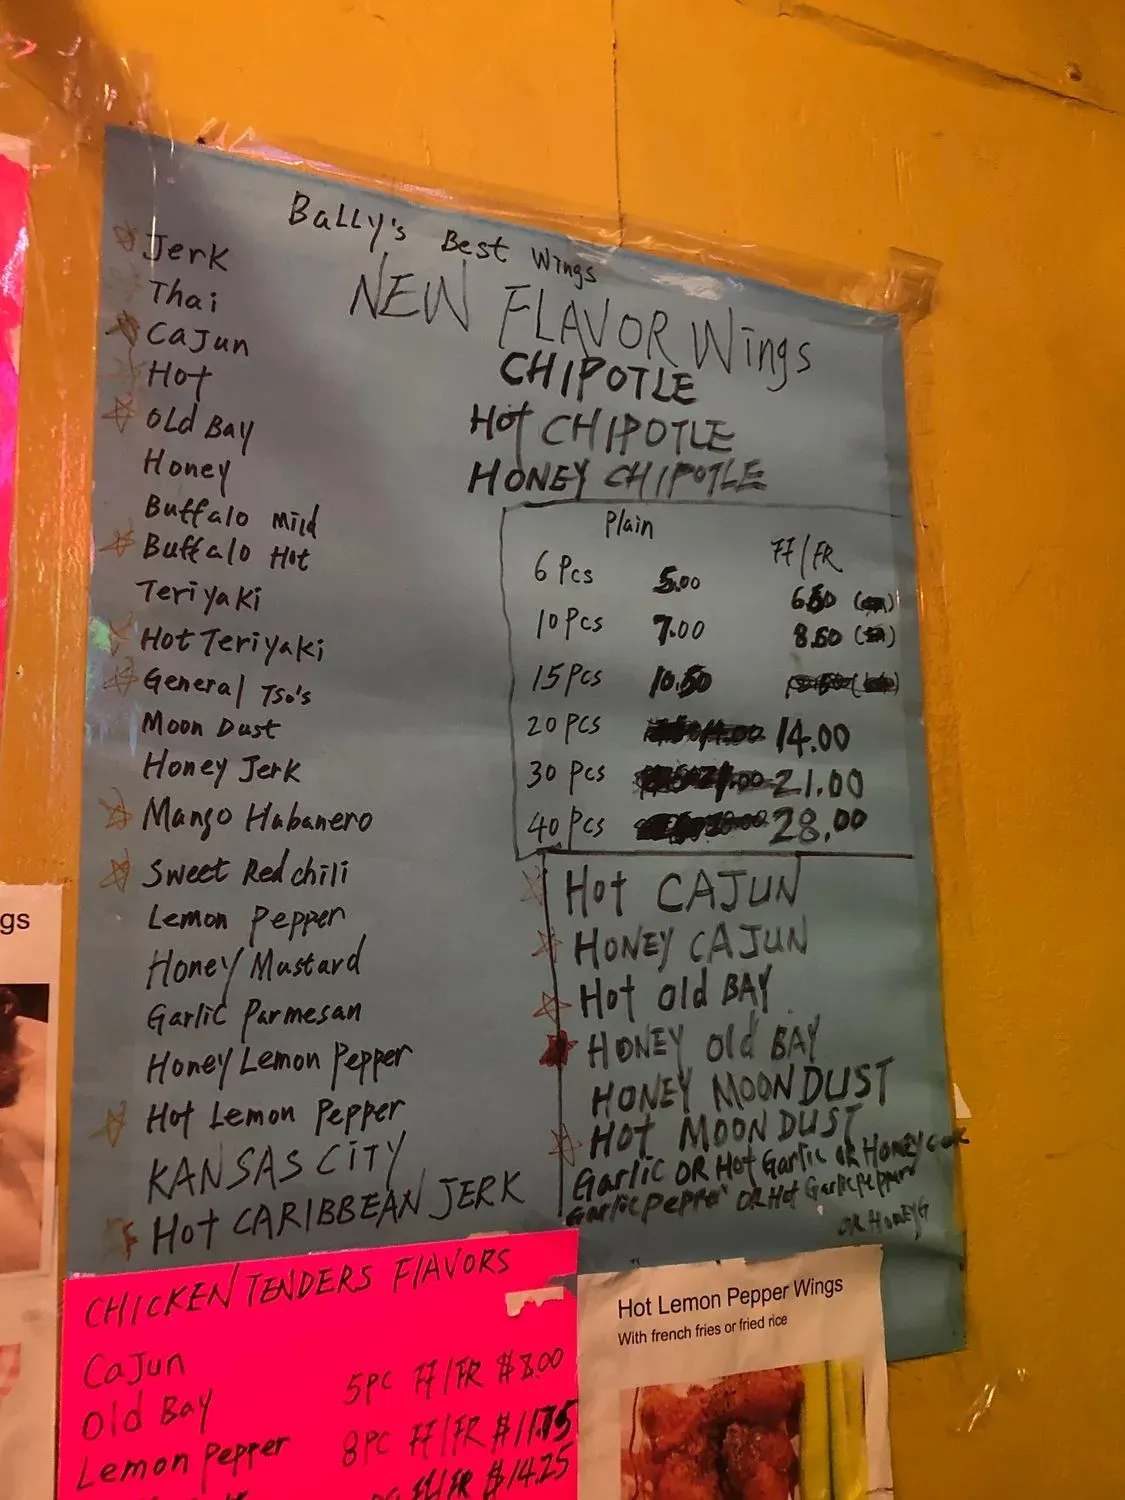 Bally's Best Wings
Jerk
Thai
Cajun
Hot
Old Bay
Honey
Buffalo Mild
Buffalo Hot
Teriyaki
Hot Teriyaki
General Tso's
Moon Dust
Honey Jerk
Mango Habanero
Sweet Red chili
Lemon Pepper
Honey Mustard
Garlic Parmesan
Honey Lemon Pepper
Hot Lemon Pepper
KANSAS CITY
Hot CARIBBEAN JERK
NEW FLAVOR Wings
CHIPOTLE
Hot CHIPOTLE
HONEY CHIPOTLE
Plain FF/FR
6 Pcs 5.00
10 Pcs 7.00 8.50
15 Pcs 10.50
20 Pcs 14.00
30 Pcs 21.00
40 Pcs 28.00
Hot CAJUN
HONEY CAJUN
Hot Old BAY
HONEY Old BAY
HONEY MOON DUST
HOT MOON DUST
Garlic OR Hot Garlic OR Honey
Garlic pepper OR Hot Garlic pepper
OR HONEY G
CHICKEN TENDERS FLAVORS
Cajun
Old Bay
Lemon Pepper
5PC FF/FR $8.00
8PC FF/FR $11.75
FF/FR $14.25
Hot Lemon Pepper Wings
With french fries or fried rice
gs